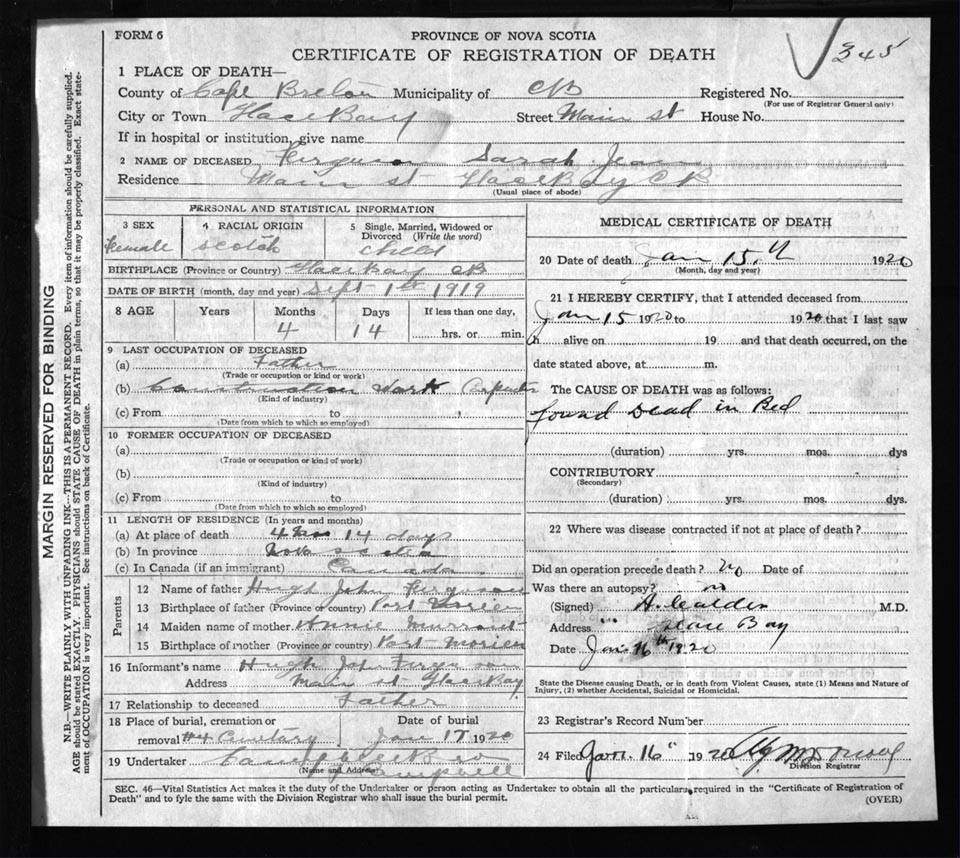 FORM 6
PROVINCE OF NOVA SCOTIA
CERTIFICATE OF REGISTRATION OF DEATH
345
1 PLACE OF DEATH—
County of Cape Breton Municipality of CB Registered No.
(For use of Registrar General only)
City or Town Glace Bay Street Main st House No.
If in hospital or institution, give name
2 NAME OF DECEASED Ferguson Sarah Jean
Residence Main st Glace Bay CB
(Usual place of abode)
PERSONAL AND STATISTICAL INFORMATION
3 SEX
Female
4 RACIAL ORIGIN
Scotch
5 Single, Married, Widowed or Divorced (Write the word)
child
BIRTHPLACE (Province or Country) Glace Bay CB
DATE OF BIRTH (month, day and year) Sept 1st 1919
8 AGE Years Months Days If less than one day,
4 14 hrs. or min.
9 LAST OCCUPATION OF DECEASED
(a) Father
(Trade or occupation or kind or work)
(b) Construction Work Carpenter
(Kind of industry)
(c) From to
(Date from which to which so employed)
10 FORMER OCCUPATION OF DECEASED
(a)
(Trade or occupation or kind of work)
(b)
(Kind of industry)
(c) From to
(Date from which to which so employed)
11 LENGTH OF RESIDENCE (In years and months)
(a) At place of death 4 mos 14 days
(b) In province Nova Scotia
(c) In Canada (if an immigrant) Canada
Parents
12 Name of father Hugh John Ferguson
13 Birthplace of father (Province or country) Port Morien
14 Maiden name of mother Annie
15 Birthplace of mother (Province or country) Port Morien
16 Informant's name Hugh John Ferguson
Address Main st Glace Bay
17 Relationship to deceased Father
18 Place of burial, cremation or Date of burial
removal #4 Cemetary Jan 17 1920
19 Undertaker
(Name and Address)
MEDICAL CERTIFICATE OF DEATH
20 Date of death Jan 15th 1920
(Month, day and year)
21 I HEREBY CERTIFY, that I attended deceased from
Jan 15 1920 to 1920 that I last saw
h alive on 19 and that death occurred, on the
date stated above, at m.
The CAUSE OF DEATH was as follows:
found Dead in Bed
(duration) yrs. mos. dys
CONTRIBUTORY
(Secondary)
(duration) yrs. mos. dys.
22 Where was disease contracted if not at place of death?
Did an operation precede death? no Date of
Was there an autopsy? no
(Signed) M.D.
Address Glace Bay
Date Jan 16th 1920
State the Disease causing Death, or in death from Violent Causes, state (1) Means and Nature of
Injury, (2) whether Accidental, Suicidal or Homicidal.
23 Registrar's Record Number
24 Filed Jan 16" 1920
Division Registrar
SEC. 46—Vital Statistics Act makes it the duty of the Undertaker or person acting as Undertaker to obtain all the particulars required in the "Certificate of Registration of
Death" and to fyle the same with the Division Registrar who shall issue the burial permit.
(OVER)
MARGIN RESERVED FOR BINDING
N.B.—WRITE PLAINLY WITH UNFADING INK—THIS IS A PERMANENT RECORD. Every item of information should be carefully supplied.
AGE should be stated EXACTLY. PHYSICIANS should STATE CAUSE OF DEATH in plain terms, so that it may be properly classified. Exact state-
ment of OCCUPATION is very important. See instructions on back of Certificate.